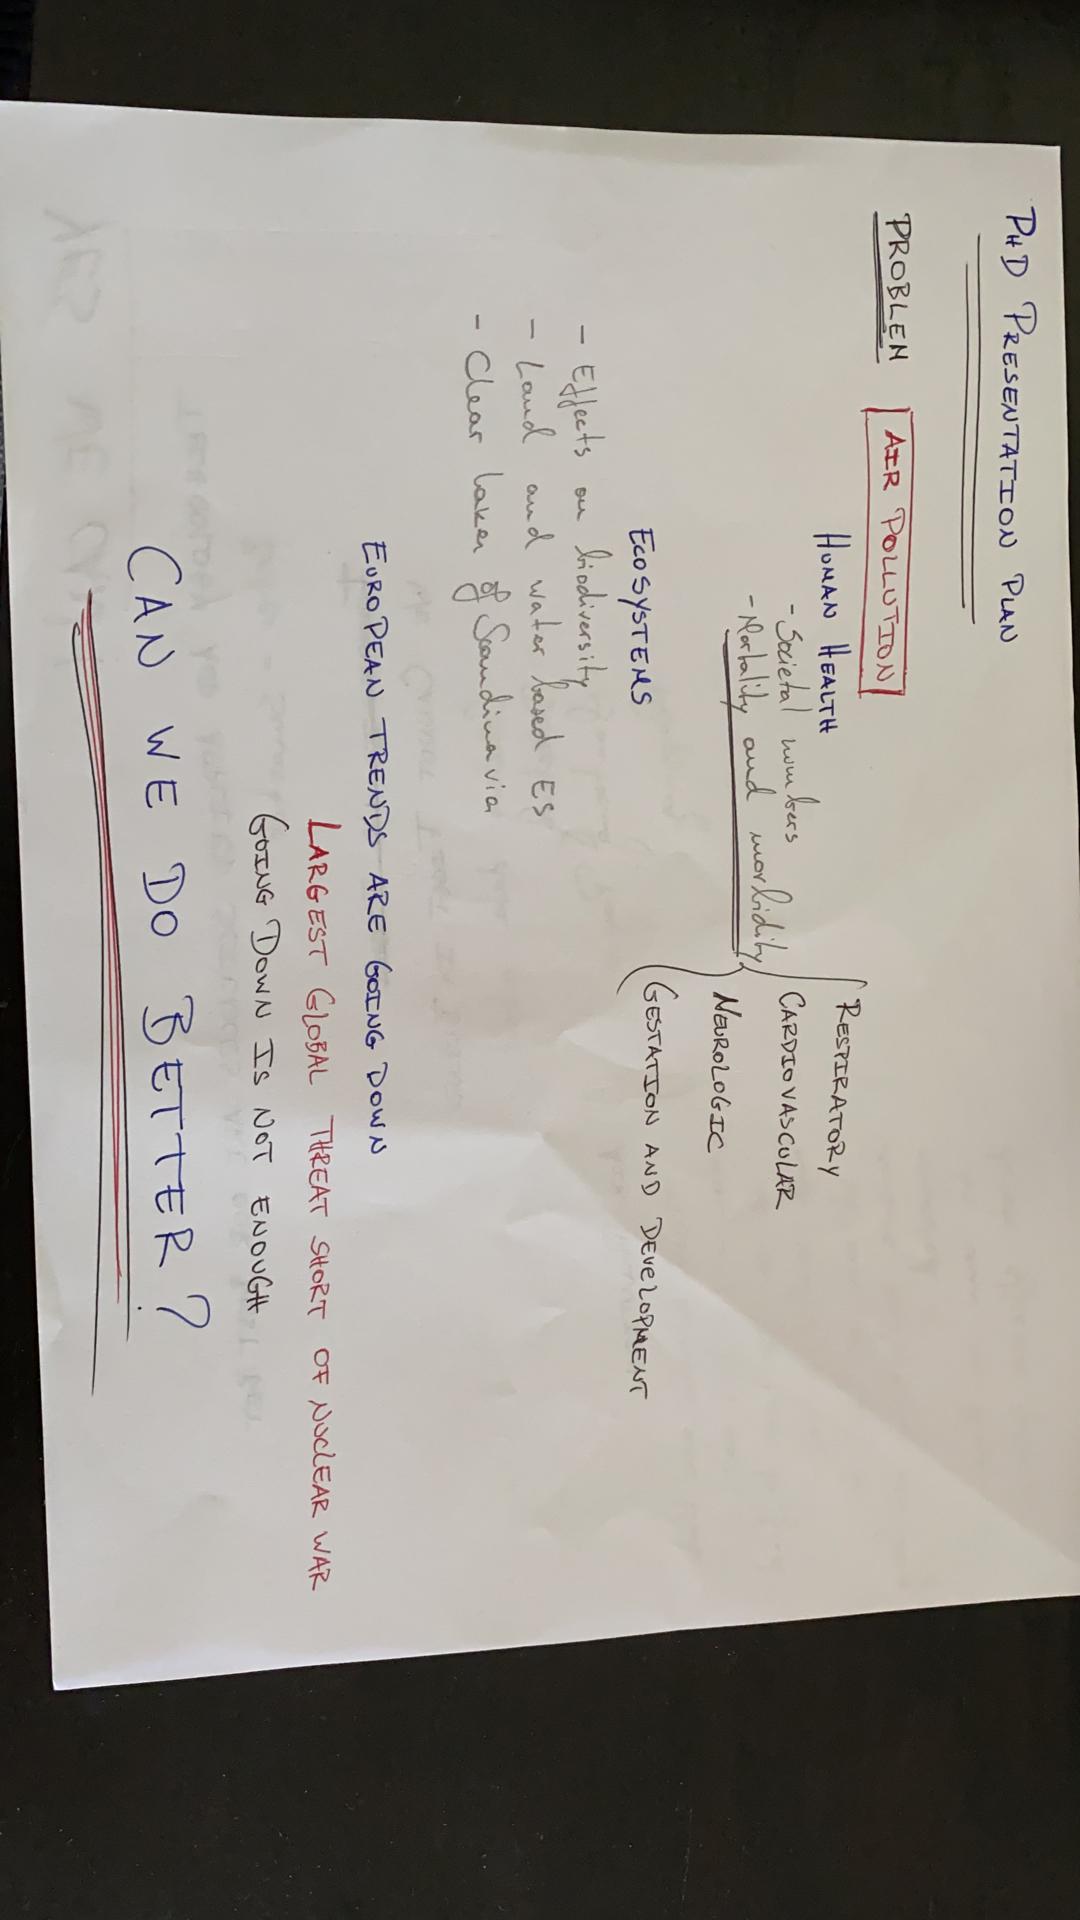 PHD PRESENTATION PLAN
PROBLEM AIR POLLUTION
HUMAN HEALTH
- Societal numbers
- Mortality and morbidity
RESPIRATORY
CARDIOVASCULAR
NEUROLOGIC
GESTATION AND DEVELOPMENT
ECOSYSTEMS
- Effects on biodiversity
- Land and water based ES
- Clear Lakes of Scandinavia
EUROPEAN TRENDS ARE GOING DOWN
LARGEST GLOBAL THREAT SHORT OF NUCLEAR WAR
GOING DOWN IS NOT ENOUGH
CAN WE DO BETTER?